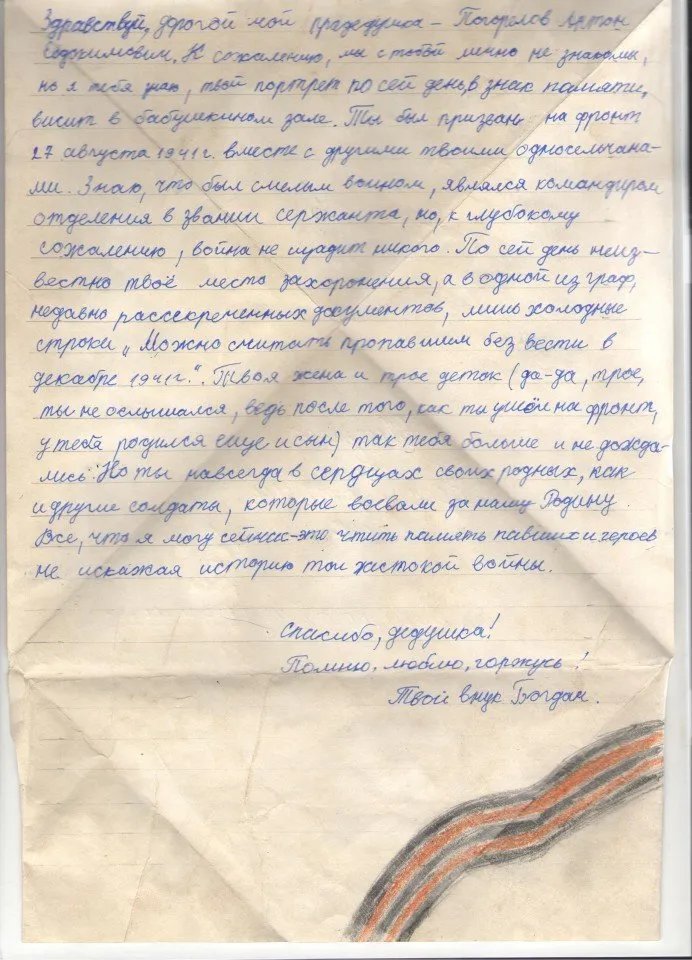 Здравствуй, дорогой мой прадедушка – Погорелов Антон
Евдокимович. К сожалению, мы с тобой лично не знакомы,
но я тебя знаю, твой портрет по сей день, в знак памяти,
висит в бабушкином зале. Ты был призван на фронт
27 августа 1941 г. вместе с другими твоими односельчана-
ми. Знаю, что был смелым воином, являлся командиром
отделения в звании сержанта, но, к глубокому
сожалению, война не щадит никого. По сей день неиз-
вестно твоё место захоронения, а в одной из граф,
недавно рассекреченных документов, лишь холодные
строки „Можно считать пропавшим без вести в
декабре 1941г.". Твоя жена и трое деток (да-да, трое,
ты не ослышался, ведь после того, как ты ушёл на фронт,
у тебя родился еще и сын) так тебя больше и не дожда-
лись. Но ты навсегда в сердцах своих родных, как
и другие солдаты, которые воевали за нашу Родину.
Все, что я могу сейчас-это чтить память павших и героев
не искажая историю той жестокой войны.
Спасибо, дедушка!
Помню, люблю, горжусь!
Твой внук Богдан.